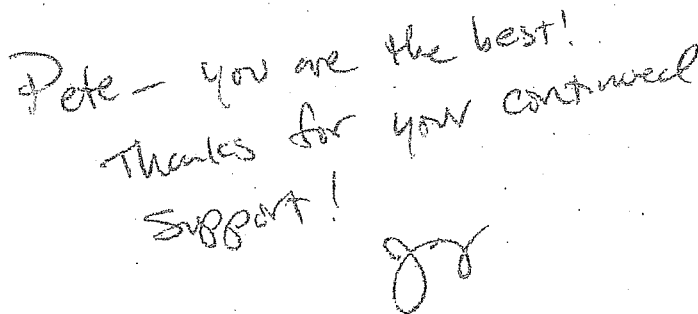 Pete — you are the best!
Thanks for your continued
support!